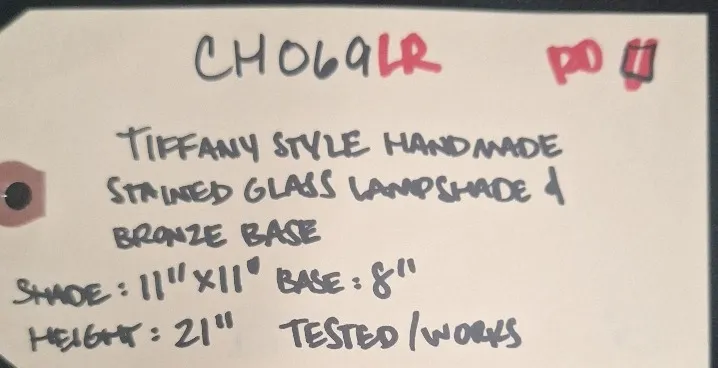 CH069LR PD
TIFFANY STYLE HANDMADE
STAINED GLASS LAMPSHADE &
BRONZE BASE
SHADE: 11" X 11" BASE: 8"
HEIGHT: 21" TESTED/WORKS